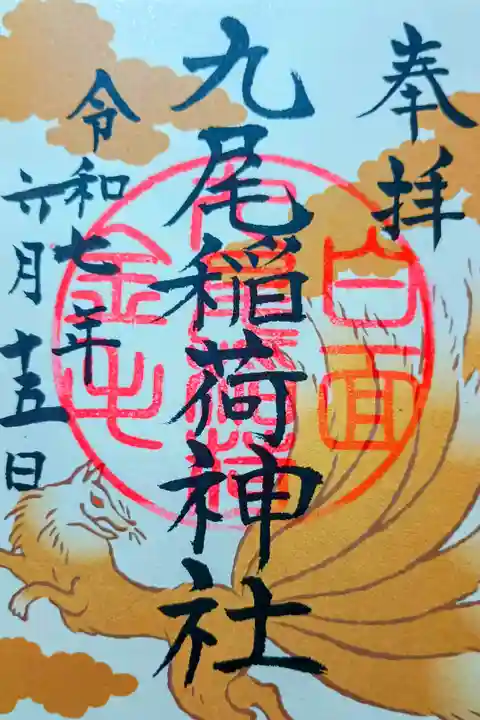 奉拝
白面
九尾稲荷神社
金毛
令和七年
六月十五日